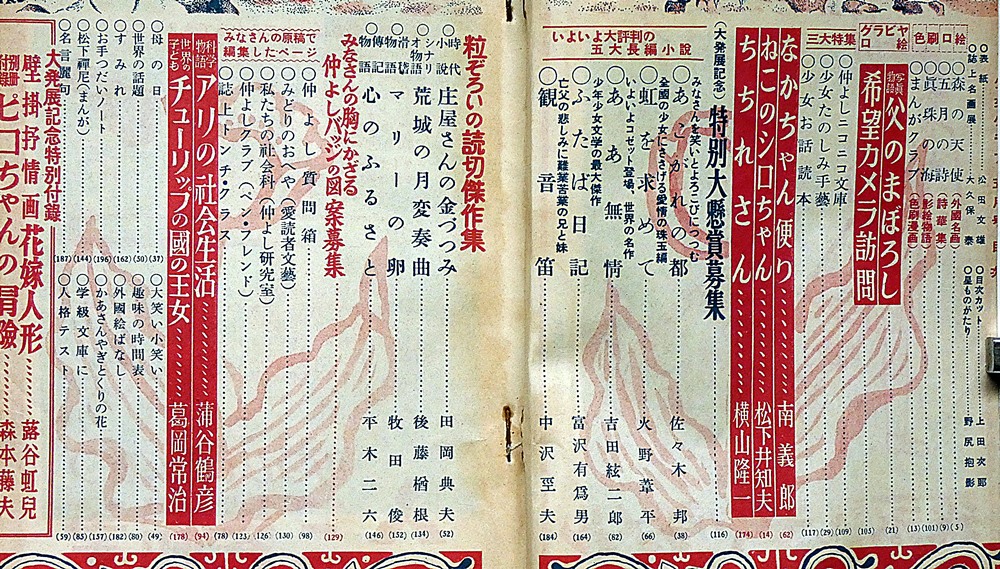 誌上名画展 大久保泰
○表紙 松田文雄
○目次カット 上田次郎
○星ものがたり 野尻抱影
色刷口絵
グラビヤ口絵
○森の天使 (外國名画) (5)
○五月の詩 (詩華集) (9)
○眞珠の海 (影絵物語) (101)
○まんがクラブ (色刷漫画) (13)
写眞物語 父のまぼろし (21)
希望カメラ訪問 (105)
三大特集
○仲よしニコニコ文庫 (109)
○少女たのしみ手藝 (29)
○少女お話読本 (117)
なかちゃん便り 南義郎 (62)
ねこのシロちゃん 松下井知夫 (14)
ちちれさん 横山隆一 (174)
(大発展記念) 特別大懸賞募集 (116)
いよいよ大評判の五大長編小説
みなさんを笑いとよろこびにつつむ
○あこがれの都 佐々木邦 (38)
全國の少女にささげる愛情の珠玉編
○虹を求めて 火野葦平 (66)
いよいよコゼット登場、世界の名作
○あゝ無情 吉田絃二郎 (82)
少年少女文学の最大傑作
○ふたば日記 富沢有爲男 (164)
亡父の悲しみに離業苦業の兄と妹
○観音笛 中沢巠夫 (184)
粒ぞろいの読切傑作集
○時代小説 庄屋さんの金づつみ 田岡典夫 (52)
○シナリオ物語 荒城の月変奏曲 後藤楢根 (134)
○滑稽物語 マリーの卵 牧田俊 (152)
○傳記物語 心のふるさと 平木二六 (146)
みなさんの胸にかざる
仲よしバッジの図案募集 (129)
みなさんの原稿で編集したページ
○仲よし質問箱 (98)
○みどりのおへや (愛読者文藝) (130)
○私たちの社会科 (仲よし研究室) (126)
○仲よしクラブ (ペン・フレンド) (123)
○誌上トンチ・クラス (78)
科学物語 アリの社会生活 蒲谷鶴彦 (94)
世界の子ども チューリップの國の王女 葛岡常治 (178)
○母の日 (37)
○世界の話題 (50)
○すみれ (162)
○お手つだいノート (196)
○松下禪尼 (まんが) (144)
○名言麗句 (187)
○大笑い小笑い (49)
○趣味の時間表 (80)
○外國絵ばなし (182)
○かあさんやぎとくりの花 (157)
○学級文庫に (85)
○人格テスト (59)
大発展記念特別付録
壁掛抒情画 花嫁人形 蕗谷虹兒
別冊付録 ピコちゃんの冒險 森本藤夫